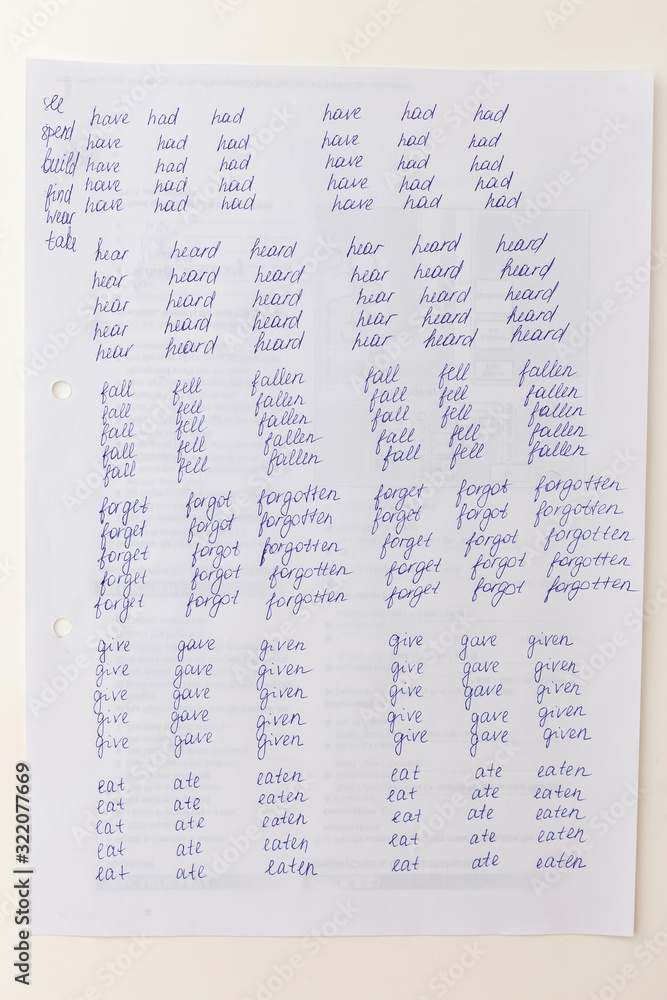 see
spend have had had have had had
have had had have had had
build have had had have had had
find have had had have had had
wear have had had have had had
take
hear heard heard hear heard heard
hear heard heard hear heard heard
hear heard heard hear heard heard
hear heard heard hear heard heard
hear heard heard hear heard heard
fall fell fallen fall fell fallen
fall fell fallen fall fell fallen
fall fell fallen fall fell fallen
fall fell fallen fall fell fallen
fall fell fallen fall fell fallen
forget forgot forgotten forget forgot forgotten
forget forgot forgotten forget forgot forgotten
forget forgot forgotten forget forgot forgotten
forget forgot forgotten forget forgot forgotten
forget forgot forgotten forget forgot forgotten
give gave given give gave given
give gave given give gave given
give gave given give gave given
give gave given give gave given
give gave given give gave given
eat ate eaten eat ate eaten
eat ate eaten eat ate eaten
eat ate eaten eat ate eaten
eat ate eaten eat ate eaten
eat ate eaten eat ate eaten
Adobe Stock | #322077669